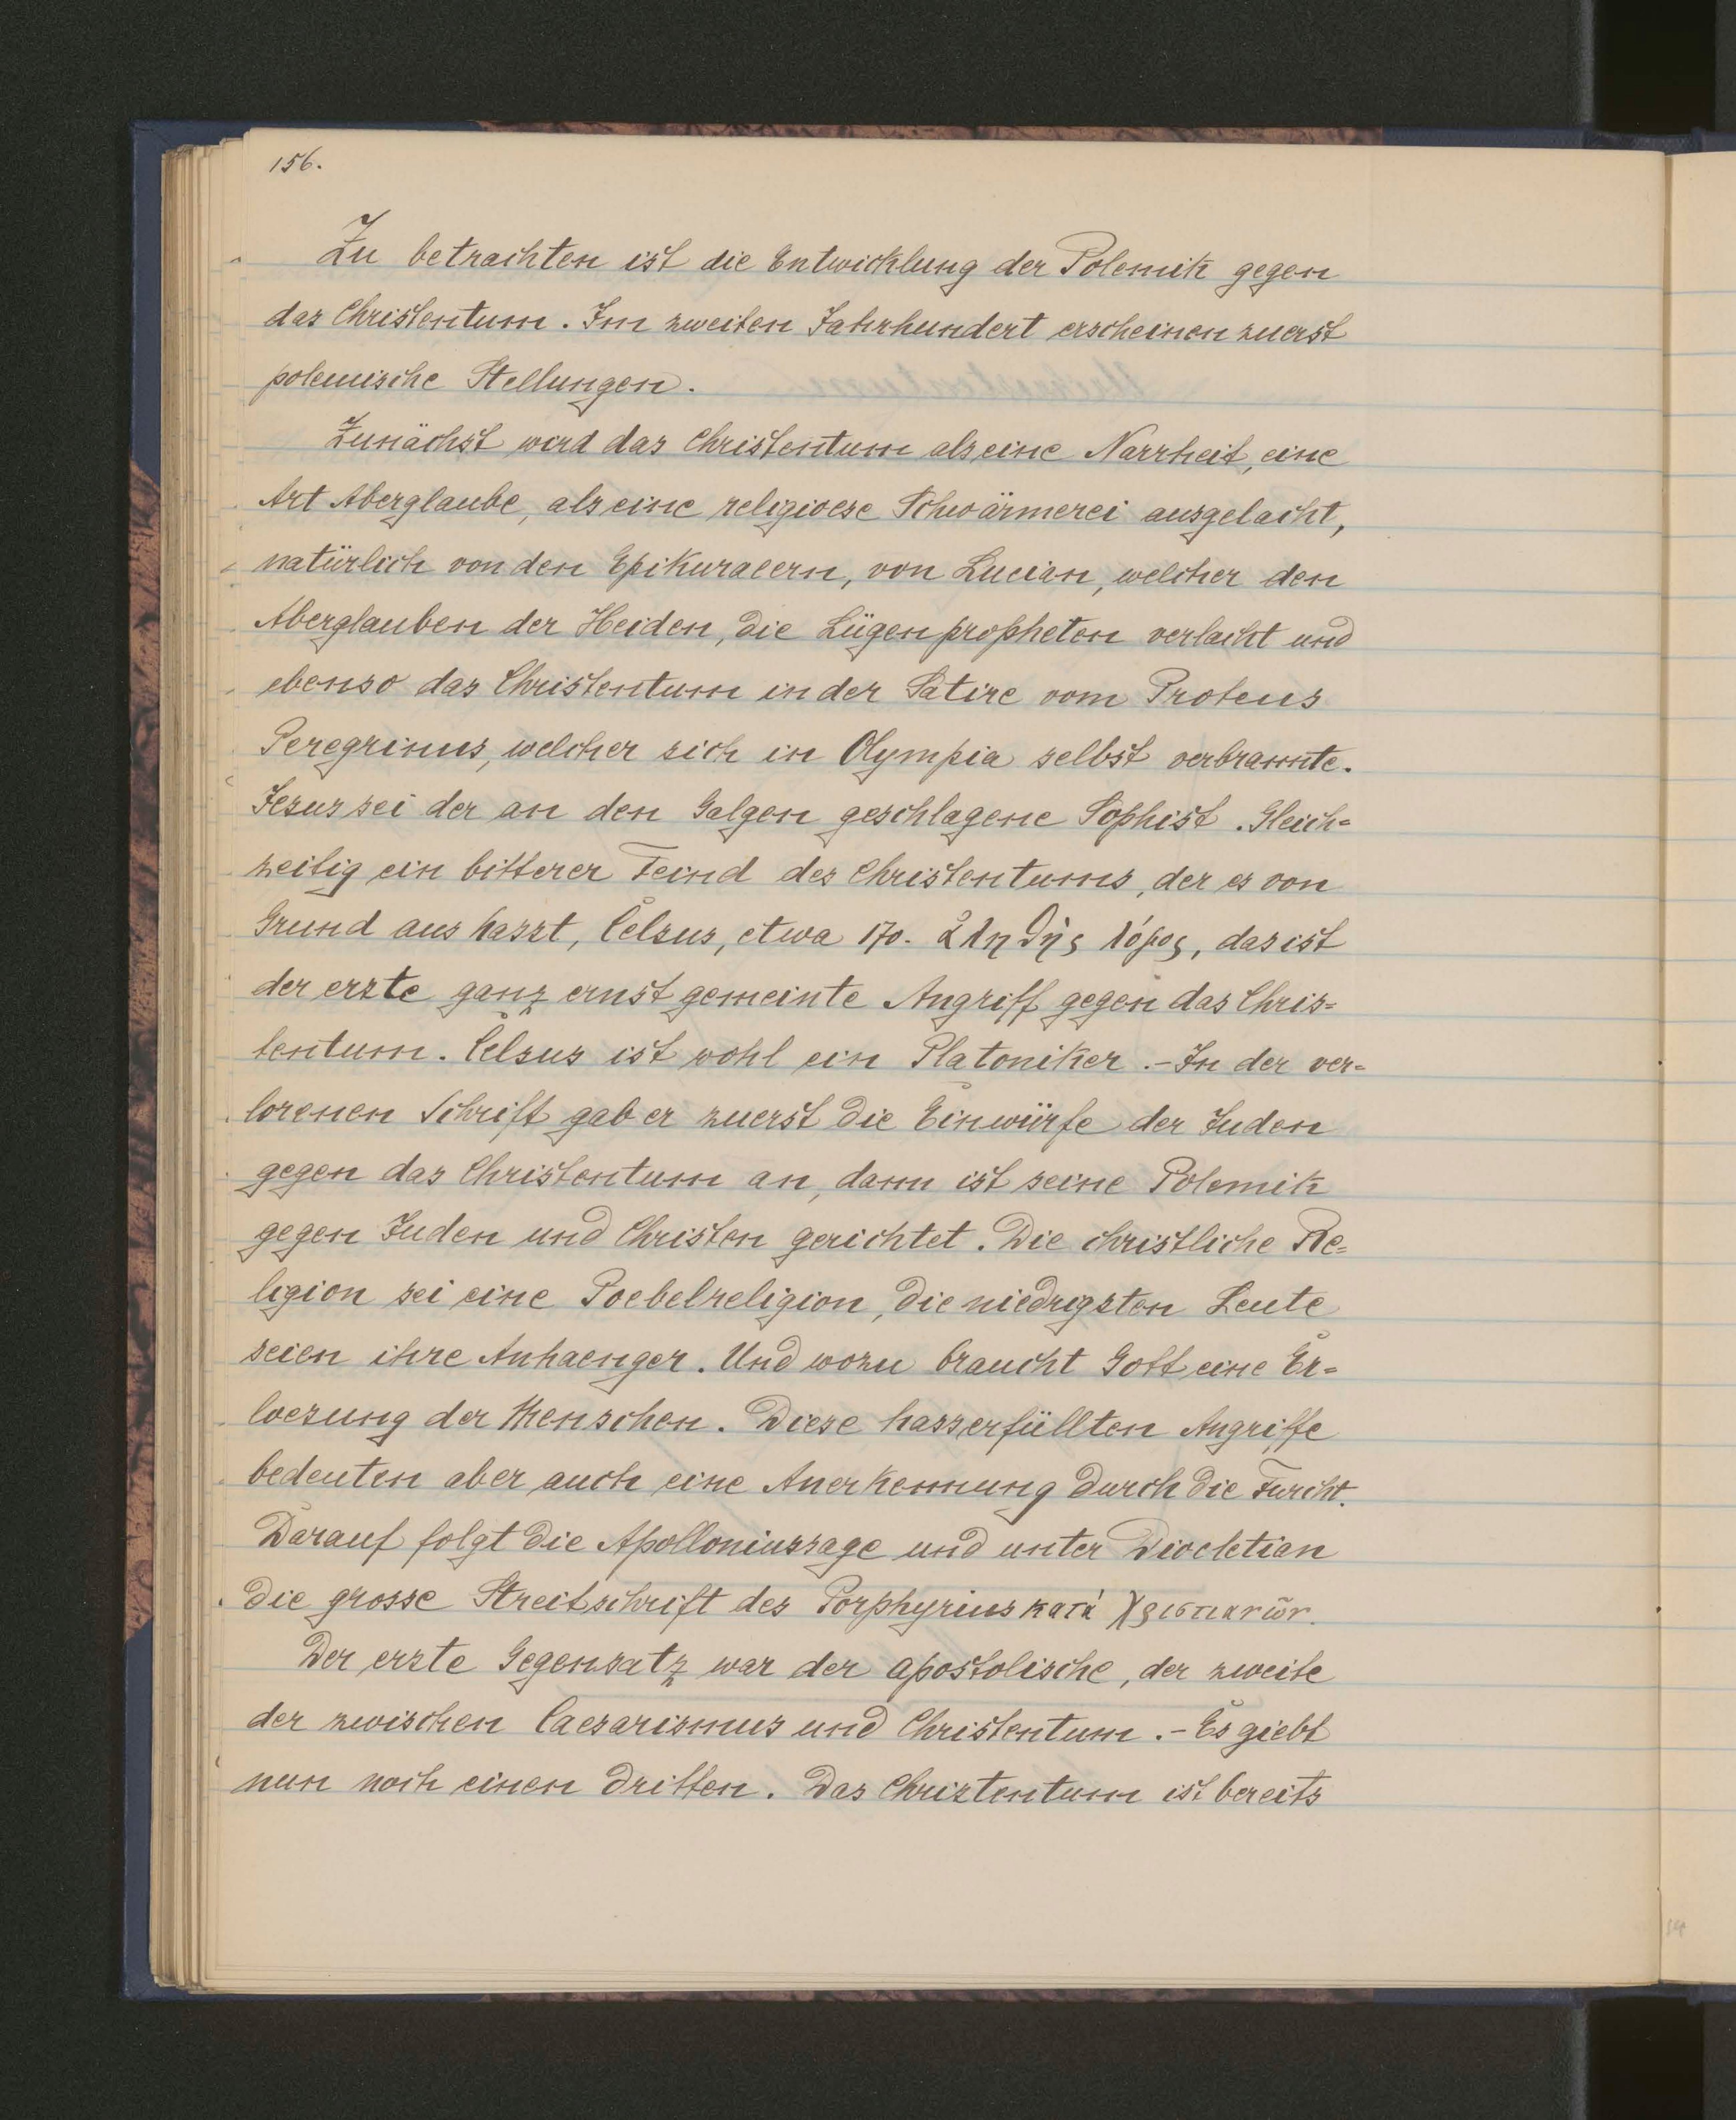 156.
Zu betrachten ist die Entwicklung der Polemik gegen
das Christentum. Im zweiten Jahrhundert erscheinen zuerst
polemische Stellungen.
Zunächst wird das Christentum als eine Narrheit, eine
Art Aberglaube, als eine religioese Schwärmerei ausgelacht,
natürlich von den Epikuraeern, von Lucian, welcher den
Aberglauben der Heiden, die Lügenpropheten verlacht und
ebenso das Christentum in der Satire vom Proteus
Peregrinus, welcher sich in Olympia selbst verbrannte.
Jesus sei der an den Galgen geschlagene Sophist. Gleich=
zeitig ein bitterer Feind des Christentums, der es von
Grund aus hasst, Celsus, etwa 170. ἀληθὴς λόγος, das ist
der erste ganz ernst gemeinte Angriff gegen das Chris=
tentum. Celsus ist wohl ein Platoniker. - In der ver=
lorenen Schrift gab er zuerst die Einwürfe der Juden
gegen das Christentum an, dann ist seine Polemik
gegen Juden und Christen gerichtet. Die christliche Re=
ligion sei eine Poebelreligion, die niedrigsten Leute
seien ihre Anhaenger. Und wozu braucht Gott eine Er=
loesung der Menschen. Diese hasserfüllten Angriffe
bedeuten aber auch eine Anerkennung durch die Furcht.
Darauf folgt die Apolloniussage und unter Diocletian
die grosse Streitschrift des Porphyrius κατὰ Χριστιανῶν.
Der erste Gegensatz war der apostolische, der zweite
der zwischen Caesarismus und Christentum. - Es giebt
nun noch einen dritten. Das Christentum ist bereits